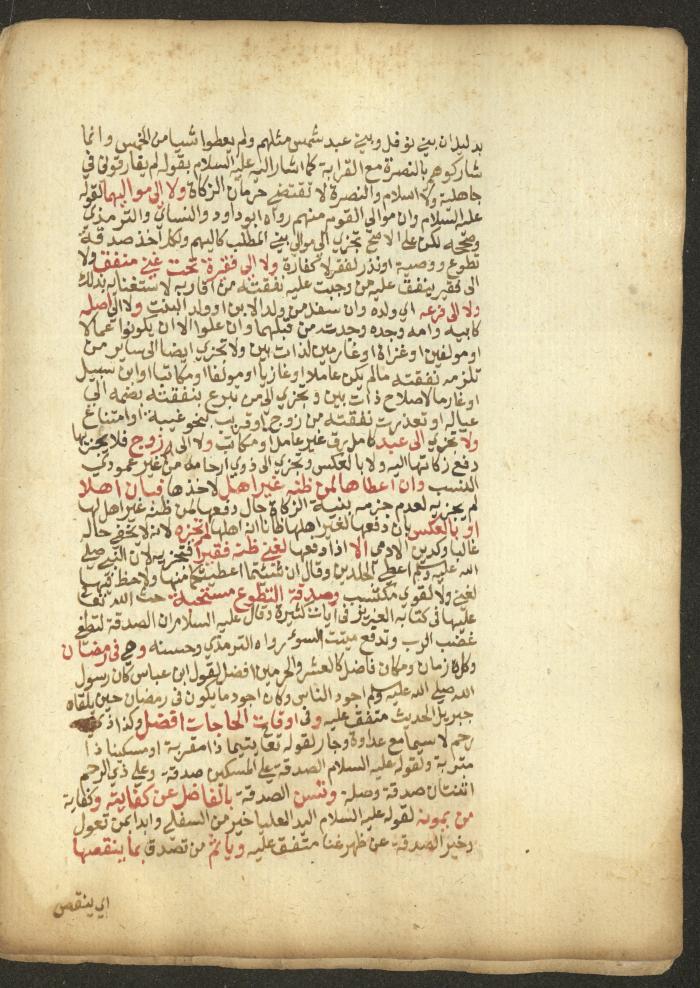 بدليل ان بني نوفل وبني عبد شمس مثلهم ولم يعطوا شيا من الخمس وانما
شاركوهم بالنصرة مع القرابة كما اشار اليه عليه السلام بقوله لم يفارقوني في
جاهلية ولا اسلام والنصرة لا تقتضي حرمان الزكاة ولا الى مواليهما لقوله
عليه السلام وان موالي القوم منهم رواه ابوداود والنسائي والترمذي
وصححه لكن على الاصح تجزي الى موالي بني المطلب كاليهم ولكل اخذ صدقة
تطوع ووصية او نذر لفقر لا كفارة ولا الى فقيرة تحت غني منفق ولا
الى فقير ينفق عليه من وجبت عليه نفقته من اقاربه لاستغنايه بذلك
ولا الى فرعه اي ولده وان سفل من ولد الابن او ولد البنت ولا الى اصله
كابيه وامه وجده وجدته من قبلهما وان علوا الا ان يكونوا عمالا
او مولفين او غزاة او غارمين لذات بين ولا تجزي ايضا الى ساير من
تلزمه نفقته مالم يكن عاملا او غازيا او مولفا او مكاتبا او ابن سبيل
او غارما لاصلاح ذات بين وتجزي الى من تبرع بنفقته بضمه الى
عياله او تعذرت نفقته من زوج او قريب لنحو غيبة او امتناع
ولا تجزي الى عبد كامل رق غير عامل او مكاتب ولا الى زوج فلا يجزيها
دفع زكاتها اليه ولا بالعكس وتجزي الى ذوي ارحامه من غير عمودي
النسب وان اعطاها لمن ظنه غير اهل لاخذها فبان اهلا
لم يجزيه لعدم جزمه بنية الزكاة حال دفعها لمن ظنه غير اهل لها
او بالعكس بان دفعها لغير اهلها ظانا انه اهلها لم تجزه لانه لا يخفى حاله
غالبا وكدين الادمي الا اذا دفعها لغني ظنه فقيرا فتجزيه لان النبي صلى
الله عليه وسلم اعطى الجلدين وقال ان شئتما اعطيتكما منها ولا حظ فيها
لغني ولا لقوي مكتسب وصدقة التطوع مستحبة حث الله تعالى
عليها في كتابه العزيز في ايات كثيرة وقال عليه السلام ان الصدقة لتطفي
غضب الرب وتدفع ميتت السوء رواه الترمذي وحسنه وهي في رمضان
وكل زمان ومكان فاضل كالعشر والحرمين افضل لقول ابن عباس كان رسول
الله صلى الله عليه وسلم اجود الناس وكان اجود ما يكون في رمضان حين يلقاه
جبريل الحديث متفق عليه وفي اوقات الحاجات افضل وكذا ذي
رحم لا سيما مع عداوة وجار لقوله تعالى يتيما ذا مقربة او مسكينا ذا
متربة ولقوله عليه السلام الصدقة على المسكين صدقة وعلى ذي الرحم
اثنتان صدقة وصلة وتسن الصدقة بالفاضل عن كفايته وكفاية
من يمونه لقوله عليه السلام اليد العليا خير من السفلى وابدا بمن تعول
وخير الصدقة عن ظهر غنا متفق عليه وياثم من تصدق بما ينقصها
اي ينقص